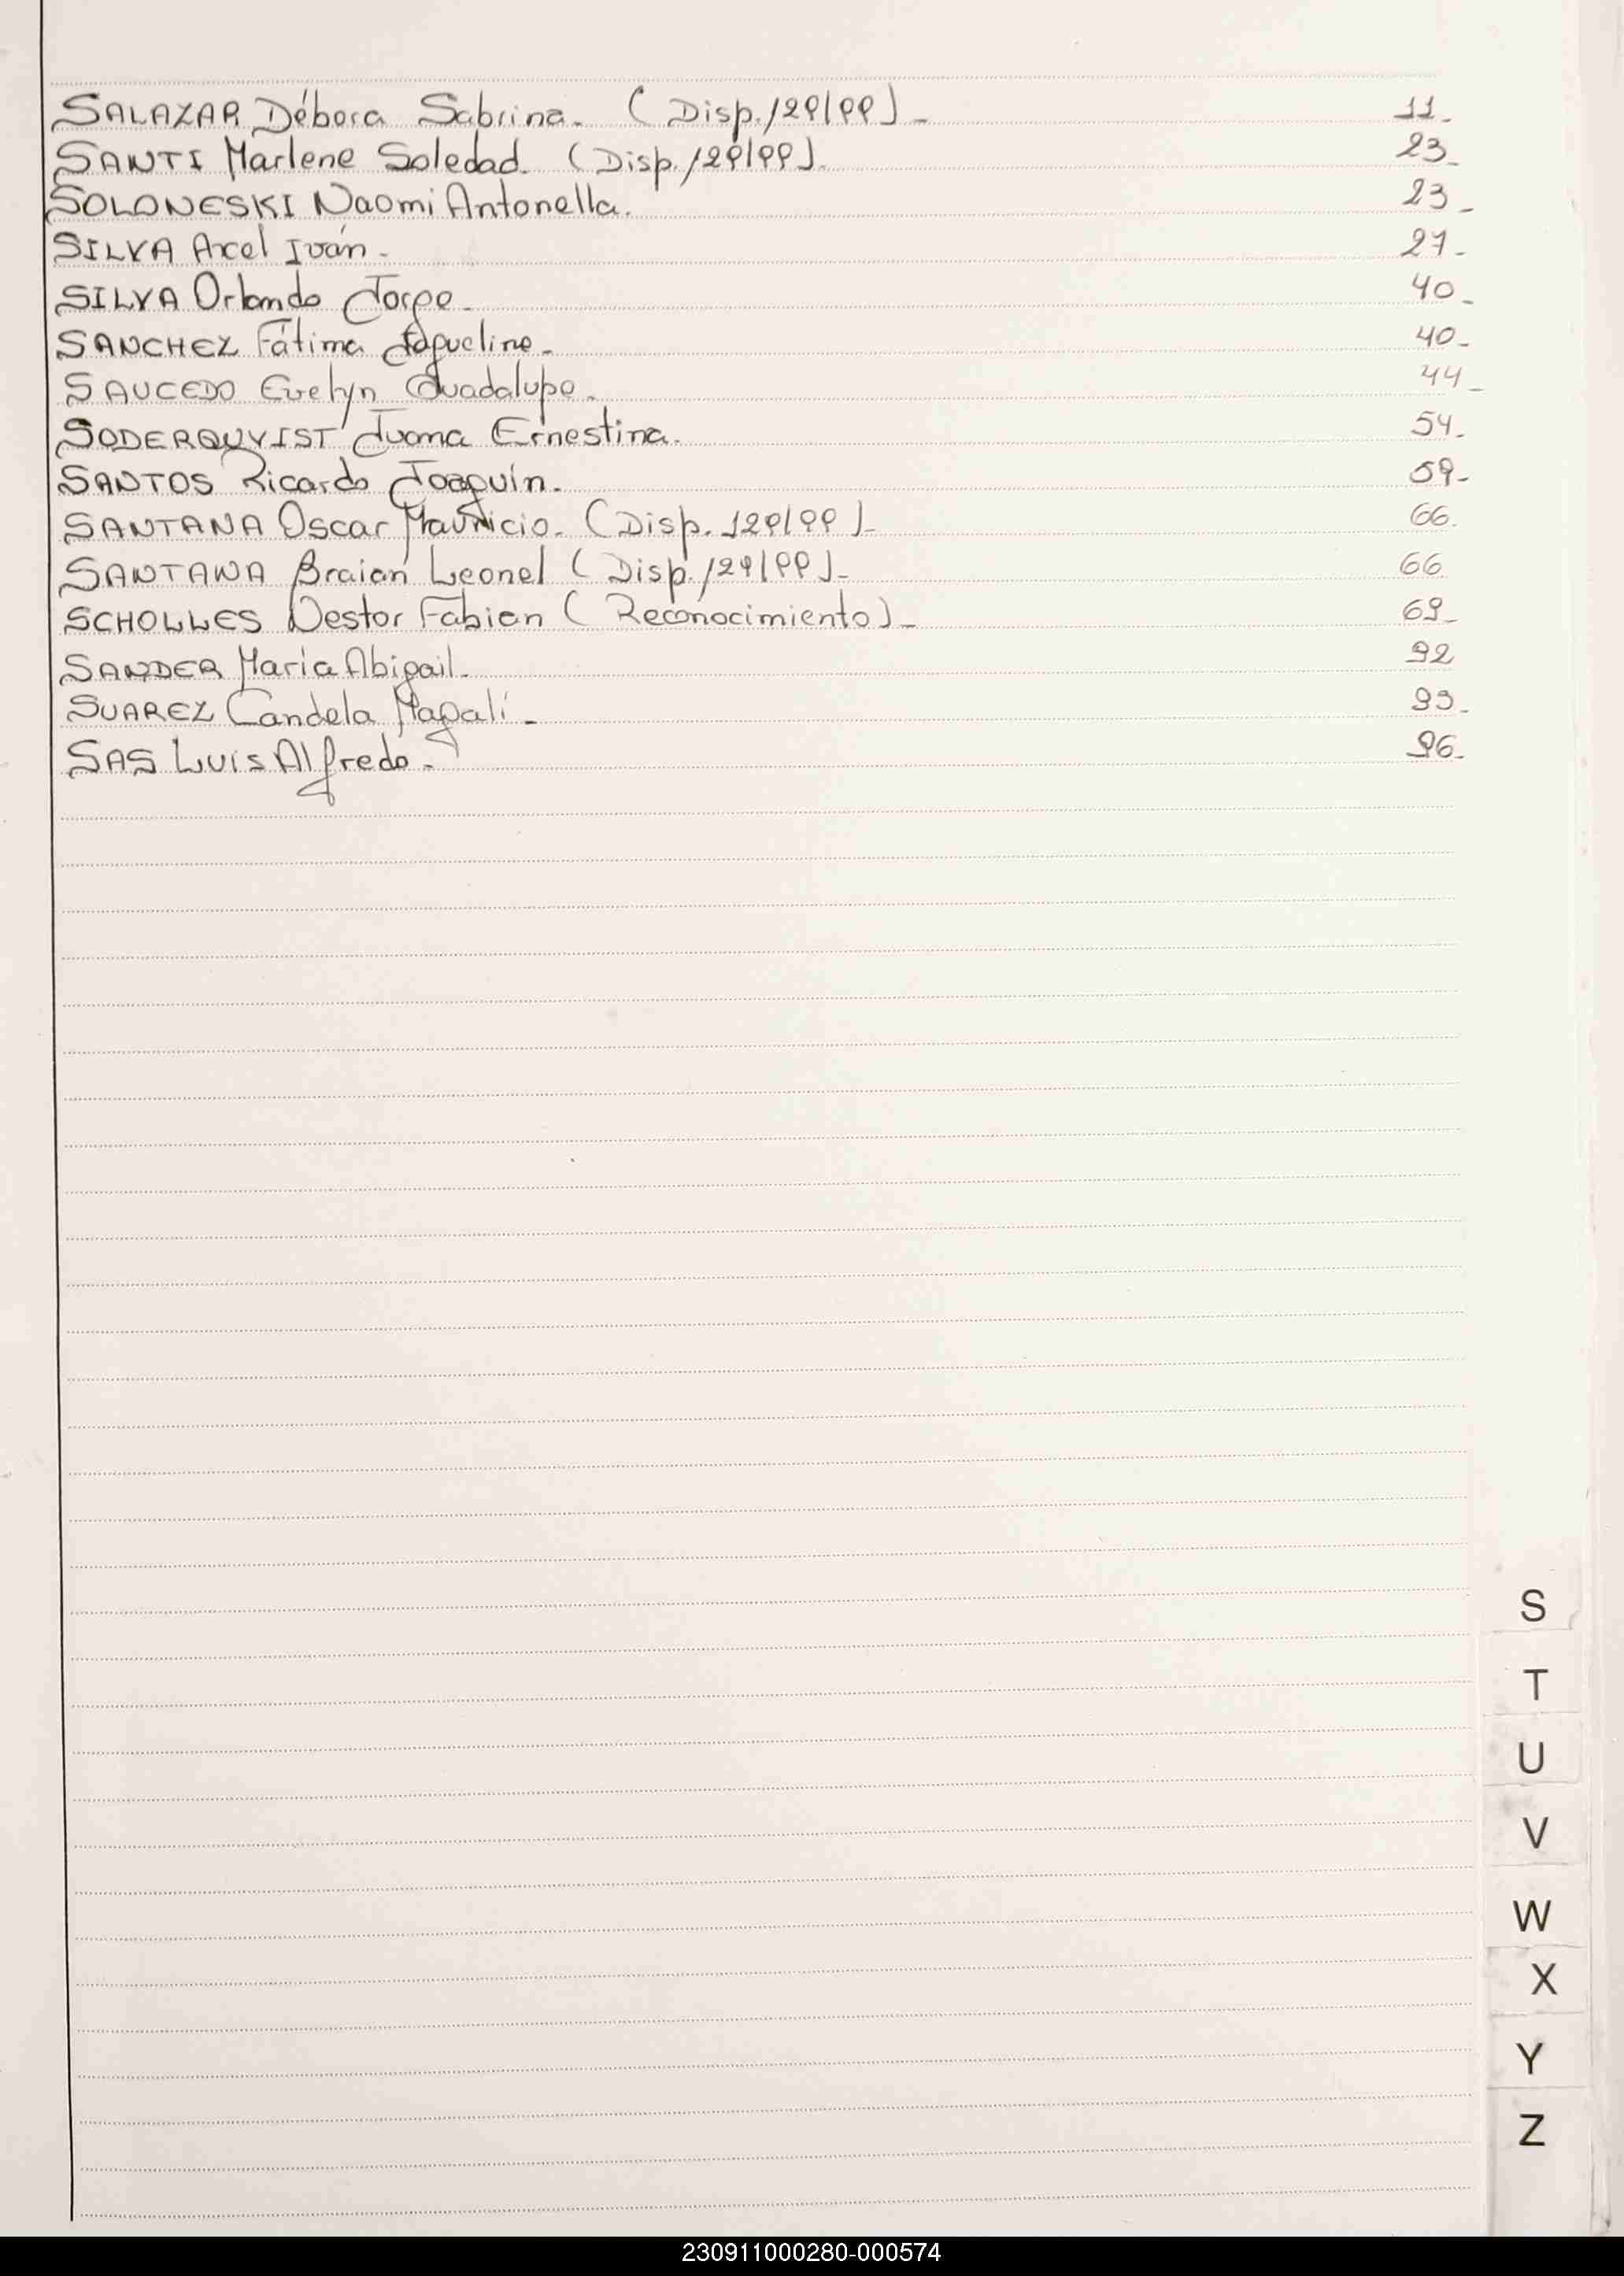 SALAZAR Débora Sabrina. (Disp. 129/99)_ 11_
SANTI Marlene Soledad. (Disp. 129/99)_ 23_
SOLONESKI Naomi Antonella. 23_
SILVA Axel Iván_ 27_
SILVA Orlando Jorge_ 40_
SANCHEZ Fátima Jaqueline_ 40_
SAUCEDO Evelyn Guadalupe_ 44_
SODERQUVIST Juana Ernestina. 54_
SANTOS Ricardo Joaquín_ 59_
SANTANA Oscar Mauricio. (Disp. 129/99)_ 66.
SANTANA Braian Leonel (Disp. 129/99)_ 66
SCHOLLES Nestor Fabian (Reconocimiento)_ 69_
SANDER María Abigail_ 92
SUAREZ Candela Magalí_ 93_
SAS Luis Alfredo_ 96_
S
T
U
V
W
X
Y
Z
230911000280-000574